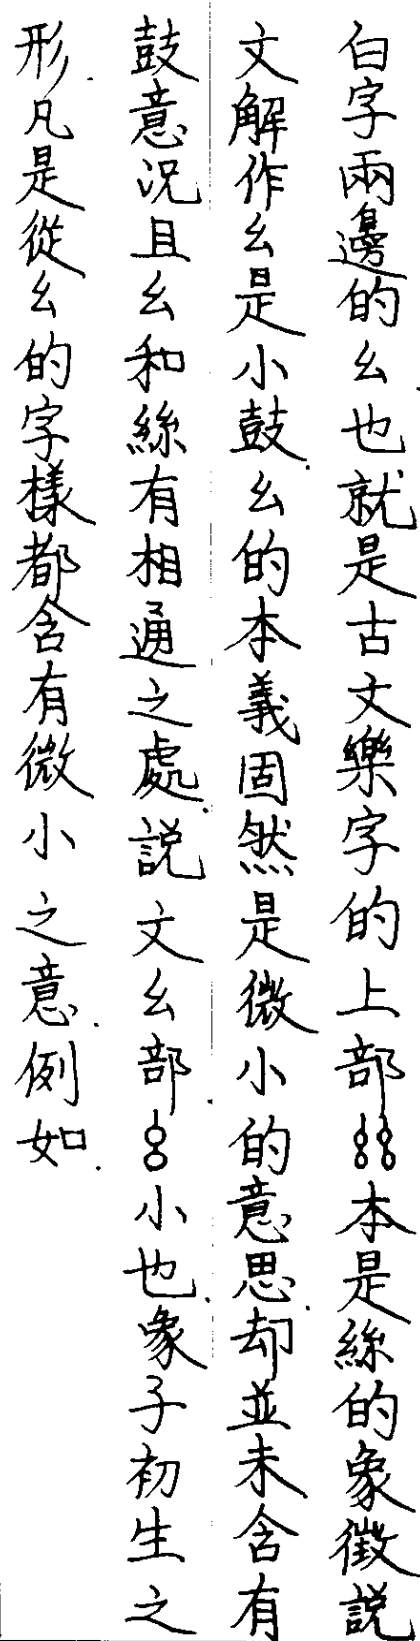 白字兩邊的幺也就是古文樂字的上部𢆶本是絲的象徵說
文解作幺是小鼓.幺的本義固然是微小的意思.却並未含有
鼓意況且幺和絲有相通之處.說文幺部.𠂭小也.象子初生之
形.凡是從幺的字樣都含有微小之意.例如.